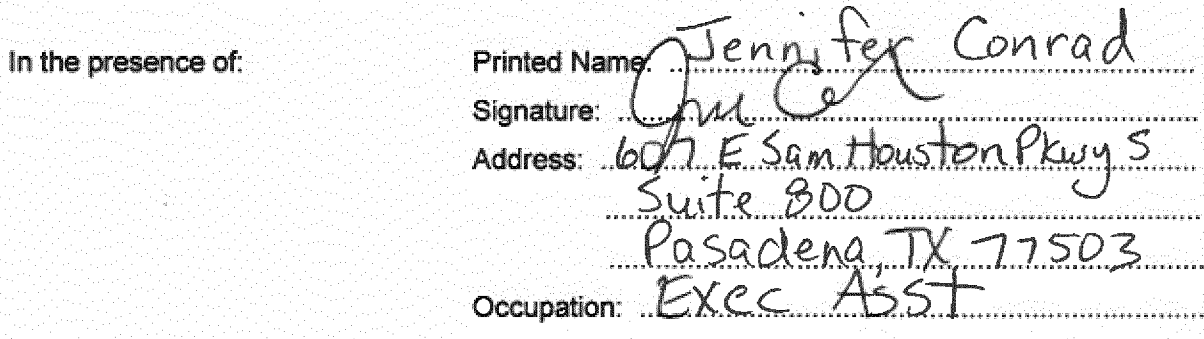 In the presence of: Printed Name: Jennifer Conrad
Signature:
Address: 607 E Sam Houston Pkwy S
Suite 800
Pasadena, TX 77503
Occupation: Exec Asst